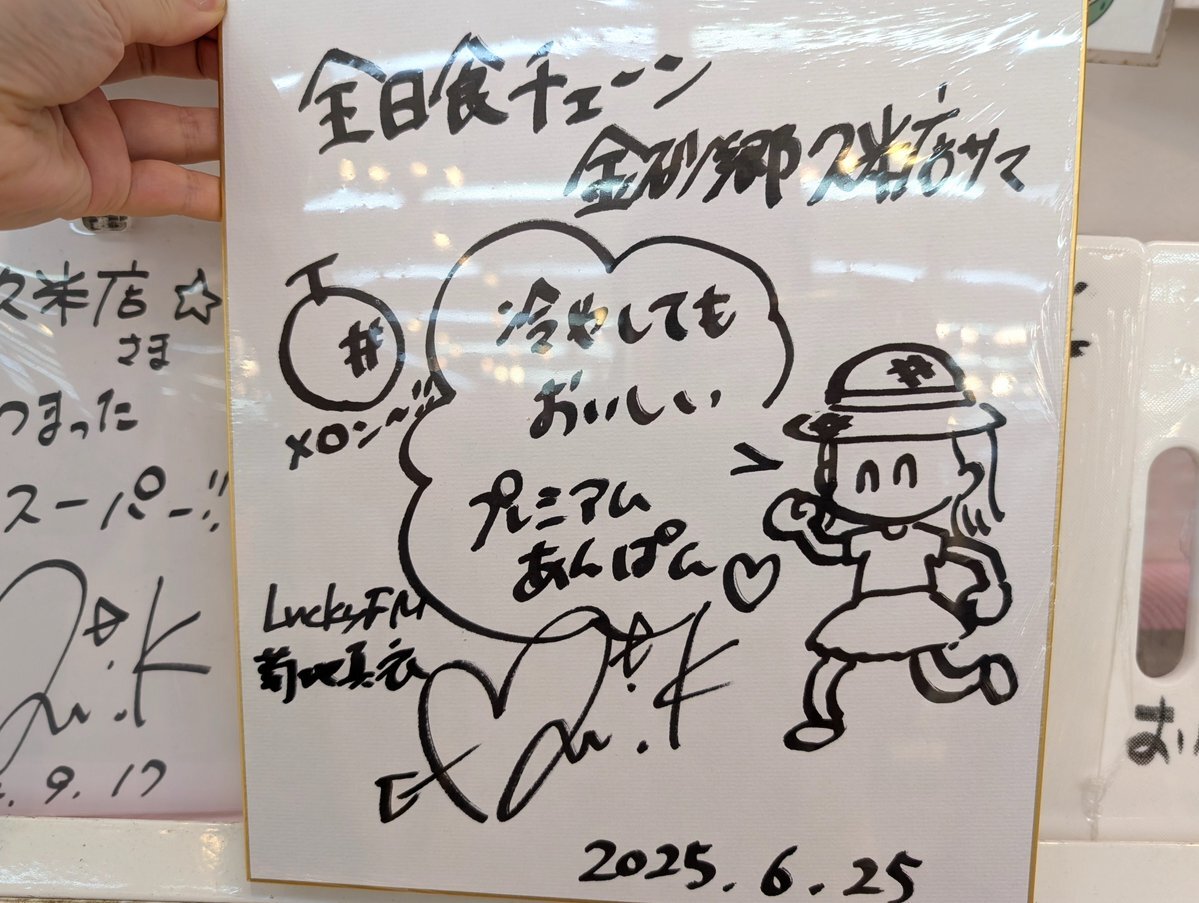 全日食チェーン
金砂郷久米店サマ
冷やしても
おいしい
メロン〜!!
プレミアム
あんぱん♡
LuckyFM
菊地真衣
2025.6.25
久米店☆
さま
つまった
スーパー!!
.9.17